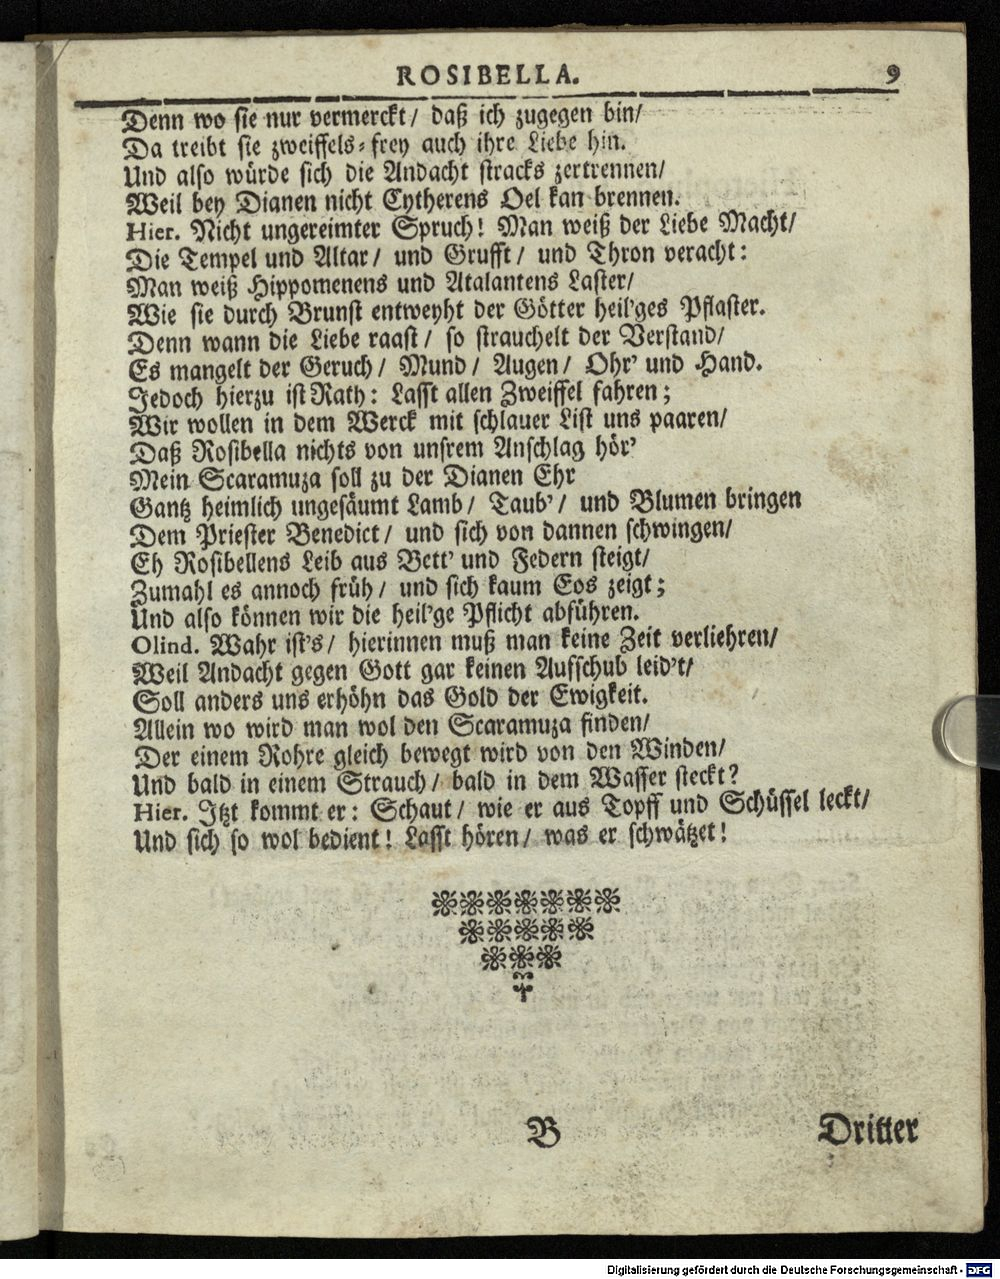 ROSIBELLA. 9
Denn wo sie nur vermerckt/ daß ich zugegen bin/
Da treibt sie zweiffels-frey auch ihre Liebe hin.
Und also würde sich die Andacht stracks zertrennen/
Weil bey Dianen nicht Cytherens Oel kan brennen.
Hier. Nicht ungereimter Spruch! Man weiß der Liebe Macht/
Die Tempel und Altar/ und Grufft/ und Thron veracht:
Man weiß Hippomenens und Atalantens Laster/
Wie sie durch Brunst entweyht der Götter heil'ges Pflaster.
Denn wann die Liebe raast/ so strauchelt der Verstand/
Es mangelt der Geruch/ Mund/ Augen/ Ohr' und Hand.
Jedoch hierzu ist Rath: Lasst allen Zweiffel fahren;
Wir wollen in dem Werck mit schlauer List uns paaren/
Daß Rosibella nichts von unsrem Anschlag hör'
Mein Scaramuza soll zu der Dianen Ehr
Gantz heimlich ungesäumt Lamb/ Taub'/ und Blumen bringen
Dem Priester Benedict/ und sich von dannen schwingen/
Eh Rosibellens Leib aus Bett' und Federn steigt/
Zumahl es annoch früh/ und sich kaum Eos zeigt;
Und also können wir die heil'ge Pflicht abführen.
Olind. Wahr ist's/ hierinnen muß man keine Zeit verliehren/
Weil Andacht gegen Gott gar keinen Auffschub leid't/
Soll anders uns erhöhn das Gold der Ewigkeit.
Allein wo wird man wol den Scaramuza finden/
Der einem Rohre gleich bewegt wird von den Winden/
Und bald in einem Strauch/ bald in dem Wasser steckt?
Hier. Itzt kommt er: Schaut/ wie er aus Topff und Schüssel leckt/
Und sich so wol bedient! Lasst hören/ was er schwätzet!
B Dritter
Digitalisierung gefördert durch die Deutsche Forschungsgemeinschaft - DFG